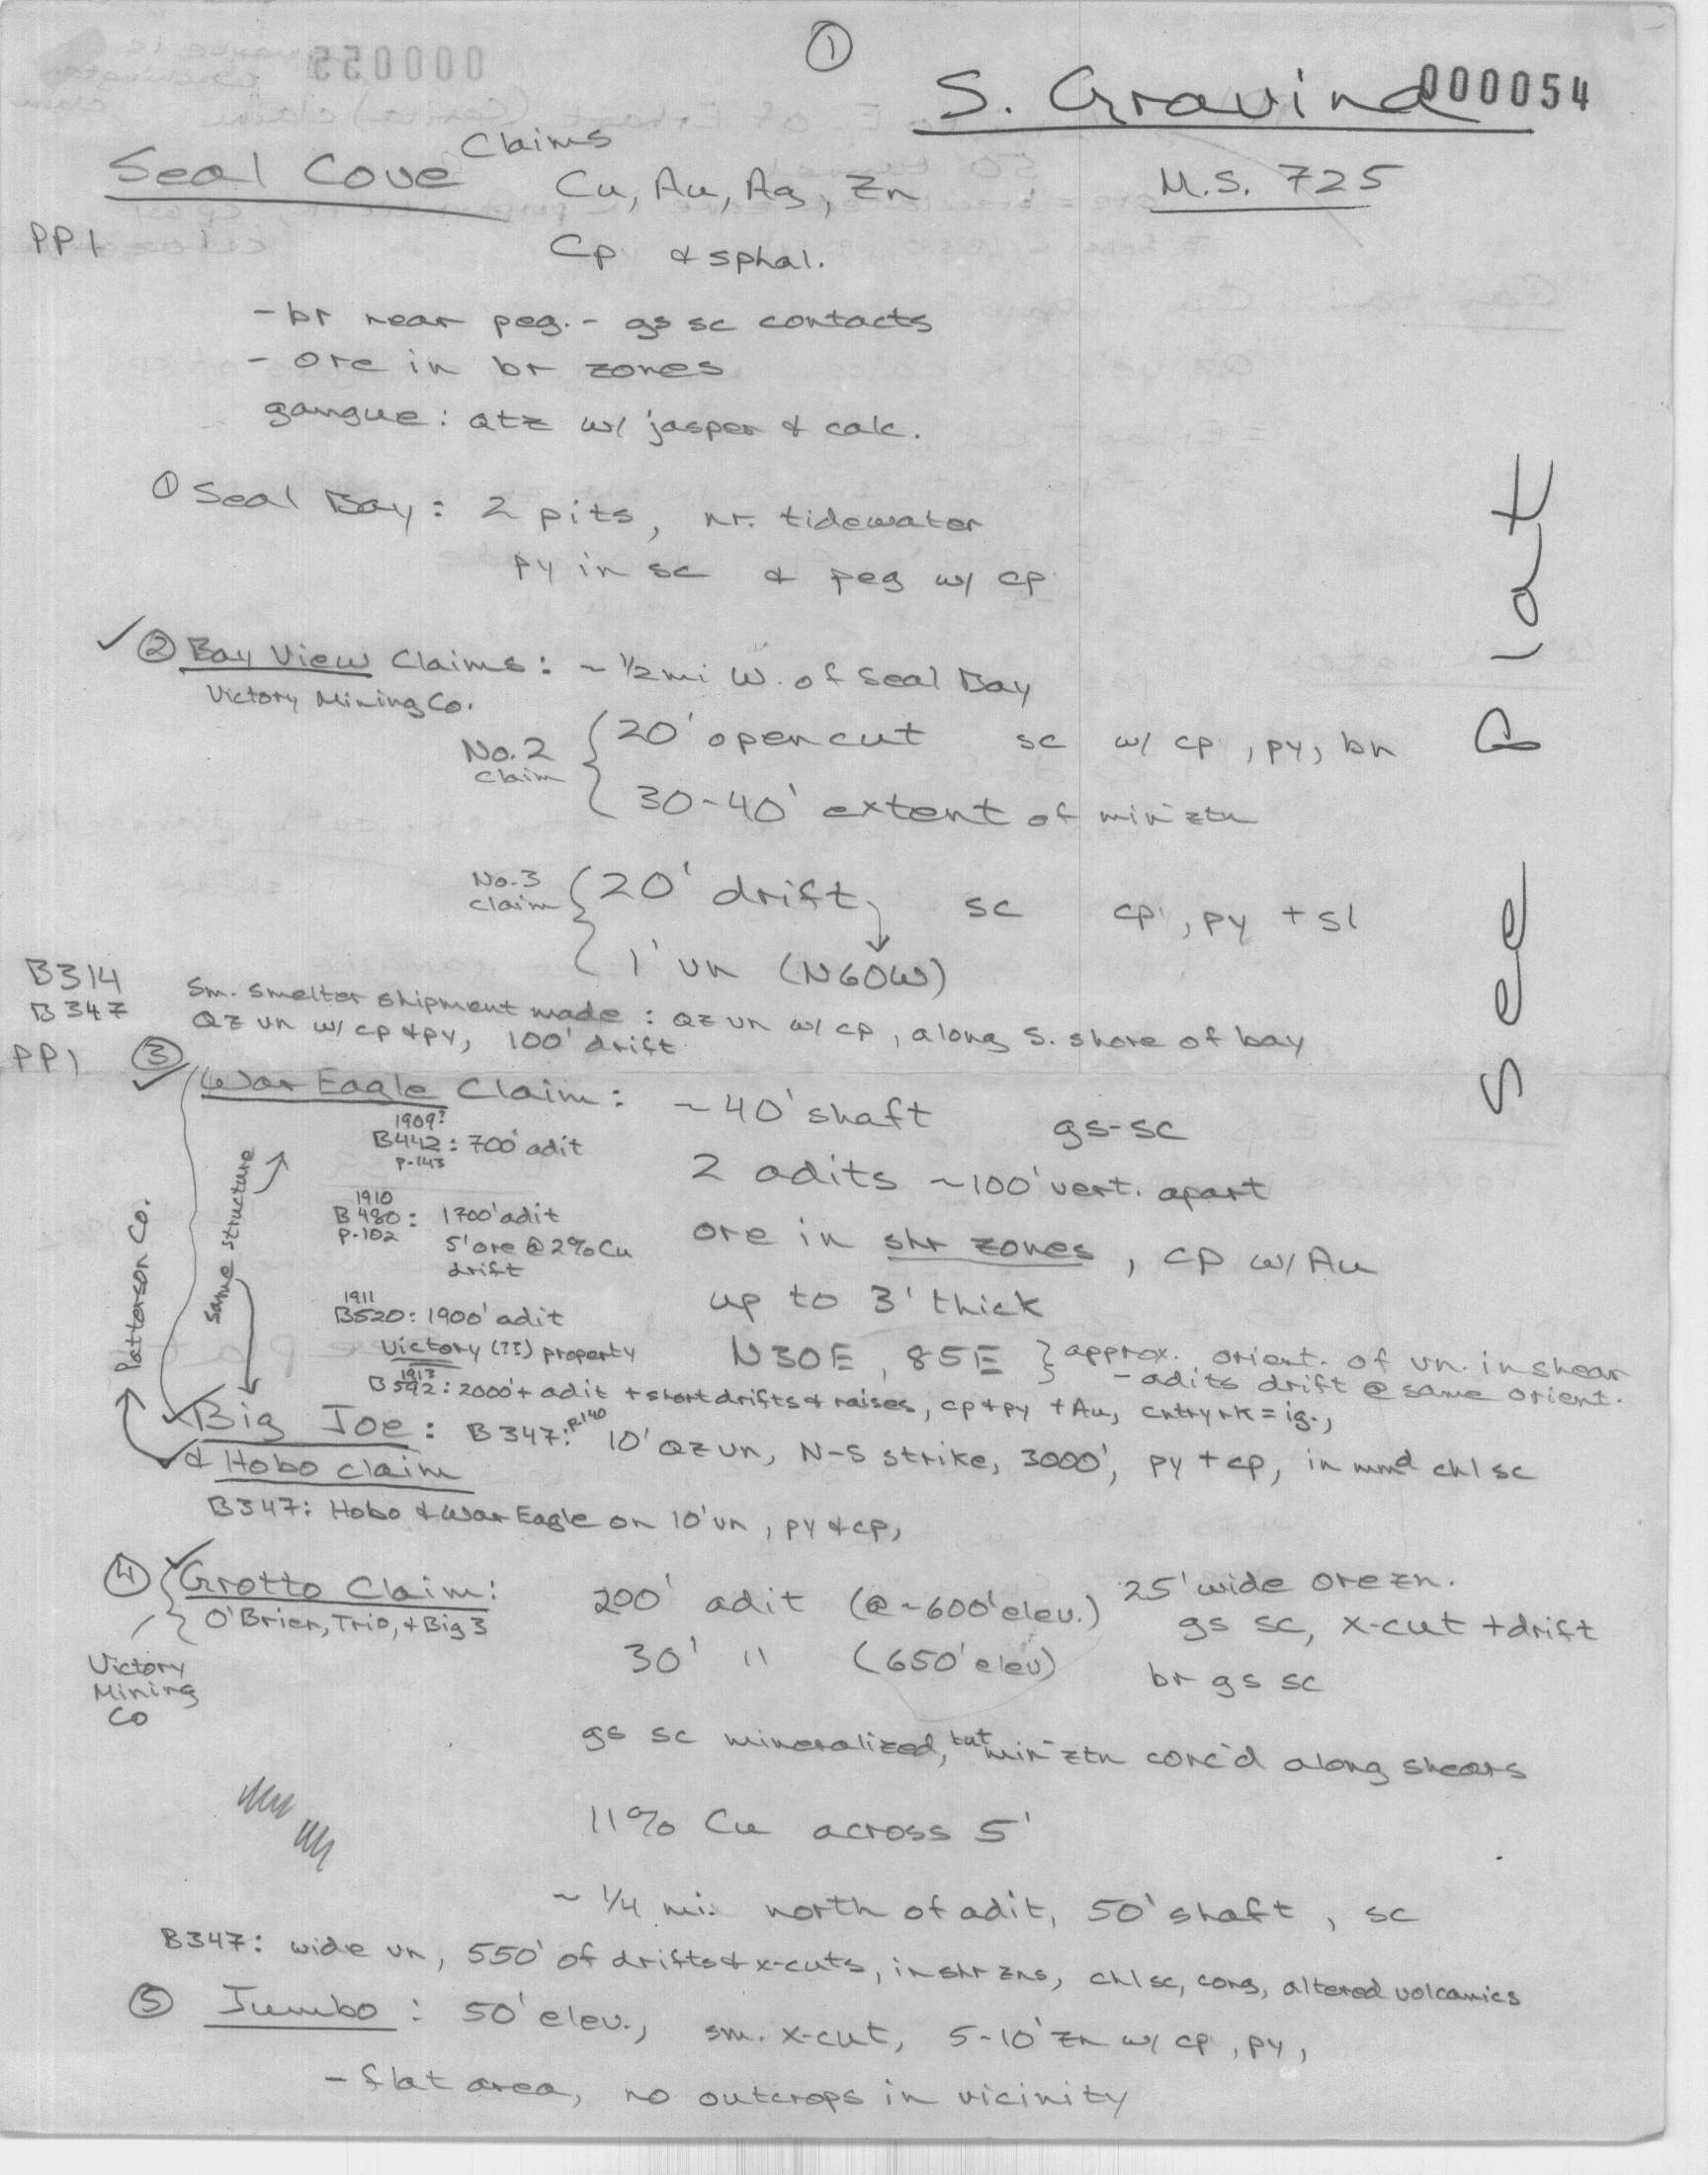 ①
000055
S. Gravina 000054
Seal Cove Claims Cu, Au, Ag, Zn
M.S. 725
PP1
Cp & sphal.
- br near peg. - gs sc contacts
- ore in br zones
gangue: qtz w/ jasper & calc.
① Seal Bay: 2 pits, nr. tidewater
py in sc & peg w/ cp
See Plat
✓ ② Bay View Claims: ~ 1/2 mi W. of Seal Bay
Victory Mining Co.
No. 2 claim { 20' open cut sc w/ cp, py, bn
30-40' extent of min'ztn
No. 3 claim { 20' drift sc cp, py + sl
1' vn (N60W)
B314
B347
Sm. smelter shipment made: QZ vn w/ cp, along S. shore of bay
QZ vn w/ cp & py, 100' drift
PP1 ③
✓ War Eagle Claim: ~40' shaft gs-sc
1909?
B442: 700' adit
p.143
2 adits ~100' vert. apart
1910
B480: 1700' adit
p.102 5' ore @ 2% Cu
drift
ore in shr zones, cp w/ Au
up to 3' thick
1911
B520: 1900' adit
Victory (??) property
N30E, 85E } approx. orient. of vn. in shear
- adits drift @ same orient.
1913
B592: 2000'+ adit + short drifts & raises, cp & py + Au, cntry rk = ig.,
Patterson Co.
same structure
✓ Big Joe: B347: p.140 10' QZ vn, N-S strike, 3000', py + cp, in mmd chl sc
✓ & Hobo claim
B347: Hobo & War Eagle on 10' vn, py & cp,
④ ✓ { Grotto Claim: 200' adit (@ ~600' elev.) 25' wide ore zn.
O'Brien, Trio, + Big 3
gs sc, x-cut + drift
30' " (650' elev) br gs sc
Victory
Mining
Co
gs sc mineralized, but min'ztn conc'd along shears
11% Cu across 5'
~ 1/4 mi. north of adit, 50' shaft, sc
B347: wide vn, 550' of drifts & x-cuts, in shr zns, chl sc, cong, altered volcanics
⑤ Jumbo: 50' elev., sm. x-cut, 5-10' zn w/ cp, py,
- flat area, no outcrops in vicinity